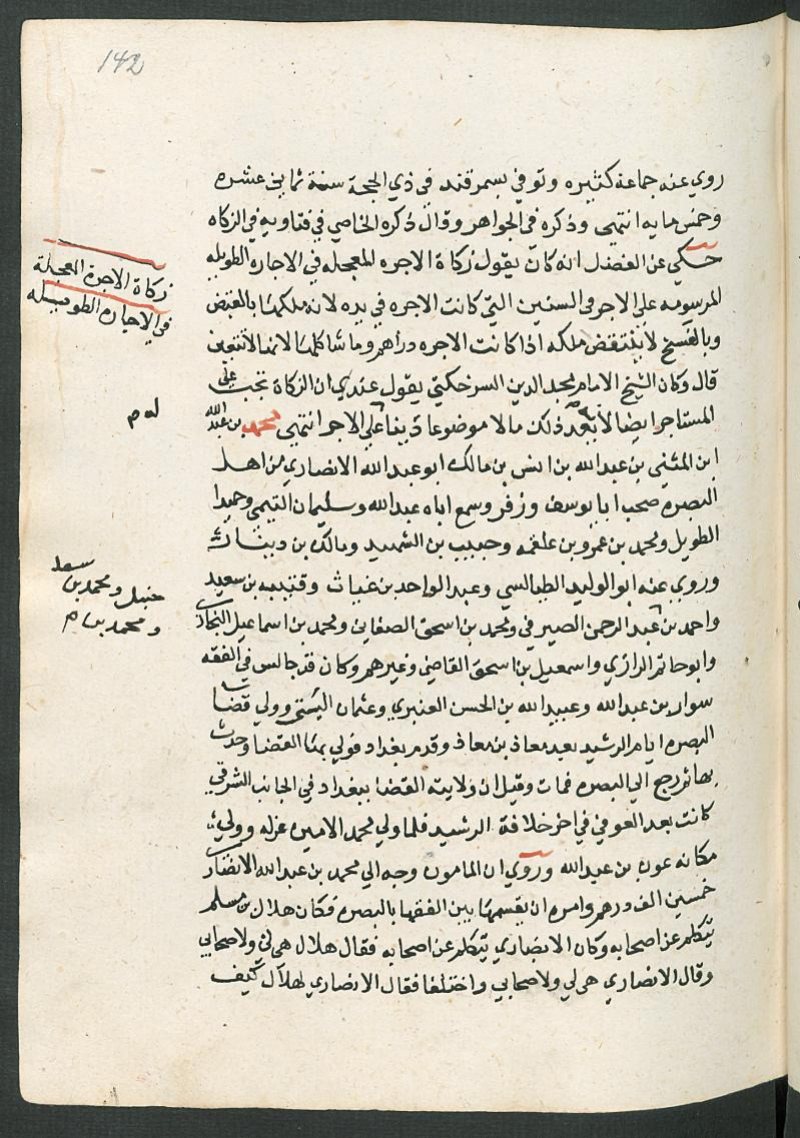 142
روي عنه جماعة كثيره وتوفي بسمرقند في ذي الحجة سنة ثماني عشره
وخمس مايه انتهى وذكره في الجواهر وقال ذكره الخاصي في فتاويه في الزكاه
حكي عن الفضل انه كان يقول زكاة الاجره المعجله في الاجاره الطويله
المرسومه على الاجر في السنين التي كانت الاجره في يده لانه ملكها بالقبض
وبالفسخ لا ينتقض ملكه اذا كانت الاجره دراهم وما شاكلها لانها لا تتعين
قال وكان الشيخ الامام مجد الدين السرخكتي يقول عندي ان الزكاة تجب على
المستاجر ايضا لا بعد ذلك مالا موضوعا دينا على الاجر انتهى محمد بن عبد الله
ابن المثنى بن عبد الله بن انس بن مالك ابو عبد الله الانصاري من اهل
البصره صحب ابا يوسف وزفر وسمع اباه عبد الله وسليمان التيمي وحميدا
الطويل ومحمد بن عمرو بن علقمه وحبيب بن الشهيد ومالك بن دينار
وروي عنه ابو الوليد الطيالسي وعبد الواحد بن غياث وقتيبه بن سعيد
واحمد بن عبد الرحمن الصيرفي ومحمد بن اسحق الصغاني ومحمد بن اسماعيل البخاري
وابو حاتم الرازي واسمعيل بن اسحق القاضي وغيرهم وكان قد جالس في الفقه
سوار بن عبد الله وعبيد الله بن الحسن العنبري وعثمان البستي وولي قضا
البصره ايام الرشيد بعد معاذ بن معاذ وقدم بغداد فولي بها القضا وحدث
بها ثم رجع الي البصره فمات وقيل ان ولايته القضا ببغداد في الجانب الشرقي
كانت بعد العوفي في اخر خلافة الرشيد فلما ولي محمد الامين عزله وولي
مكانه عون بن عبد الله وروي ان المامون وجه الي محمد بن عبد الله الانصاري
خمسين الف درهم وامره ان يقسمها بين الفقها بالبصره فكان هلال بن مسلم
يتكلم عن اصحابه وكان الانصاري يتكلم عن اصحابه فقال هلال هي لي ولاصحابي
وقال الانصاري هي لي ولاصحابي واختلفا فقال الانصاري لهلال كيف
زكاة الاجرة المعجلة
في الاجاره الطويله
له م
سعد
حنبل ومحمد بن
ومحمد بن م